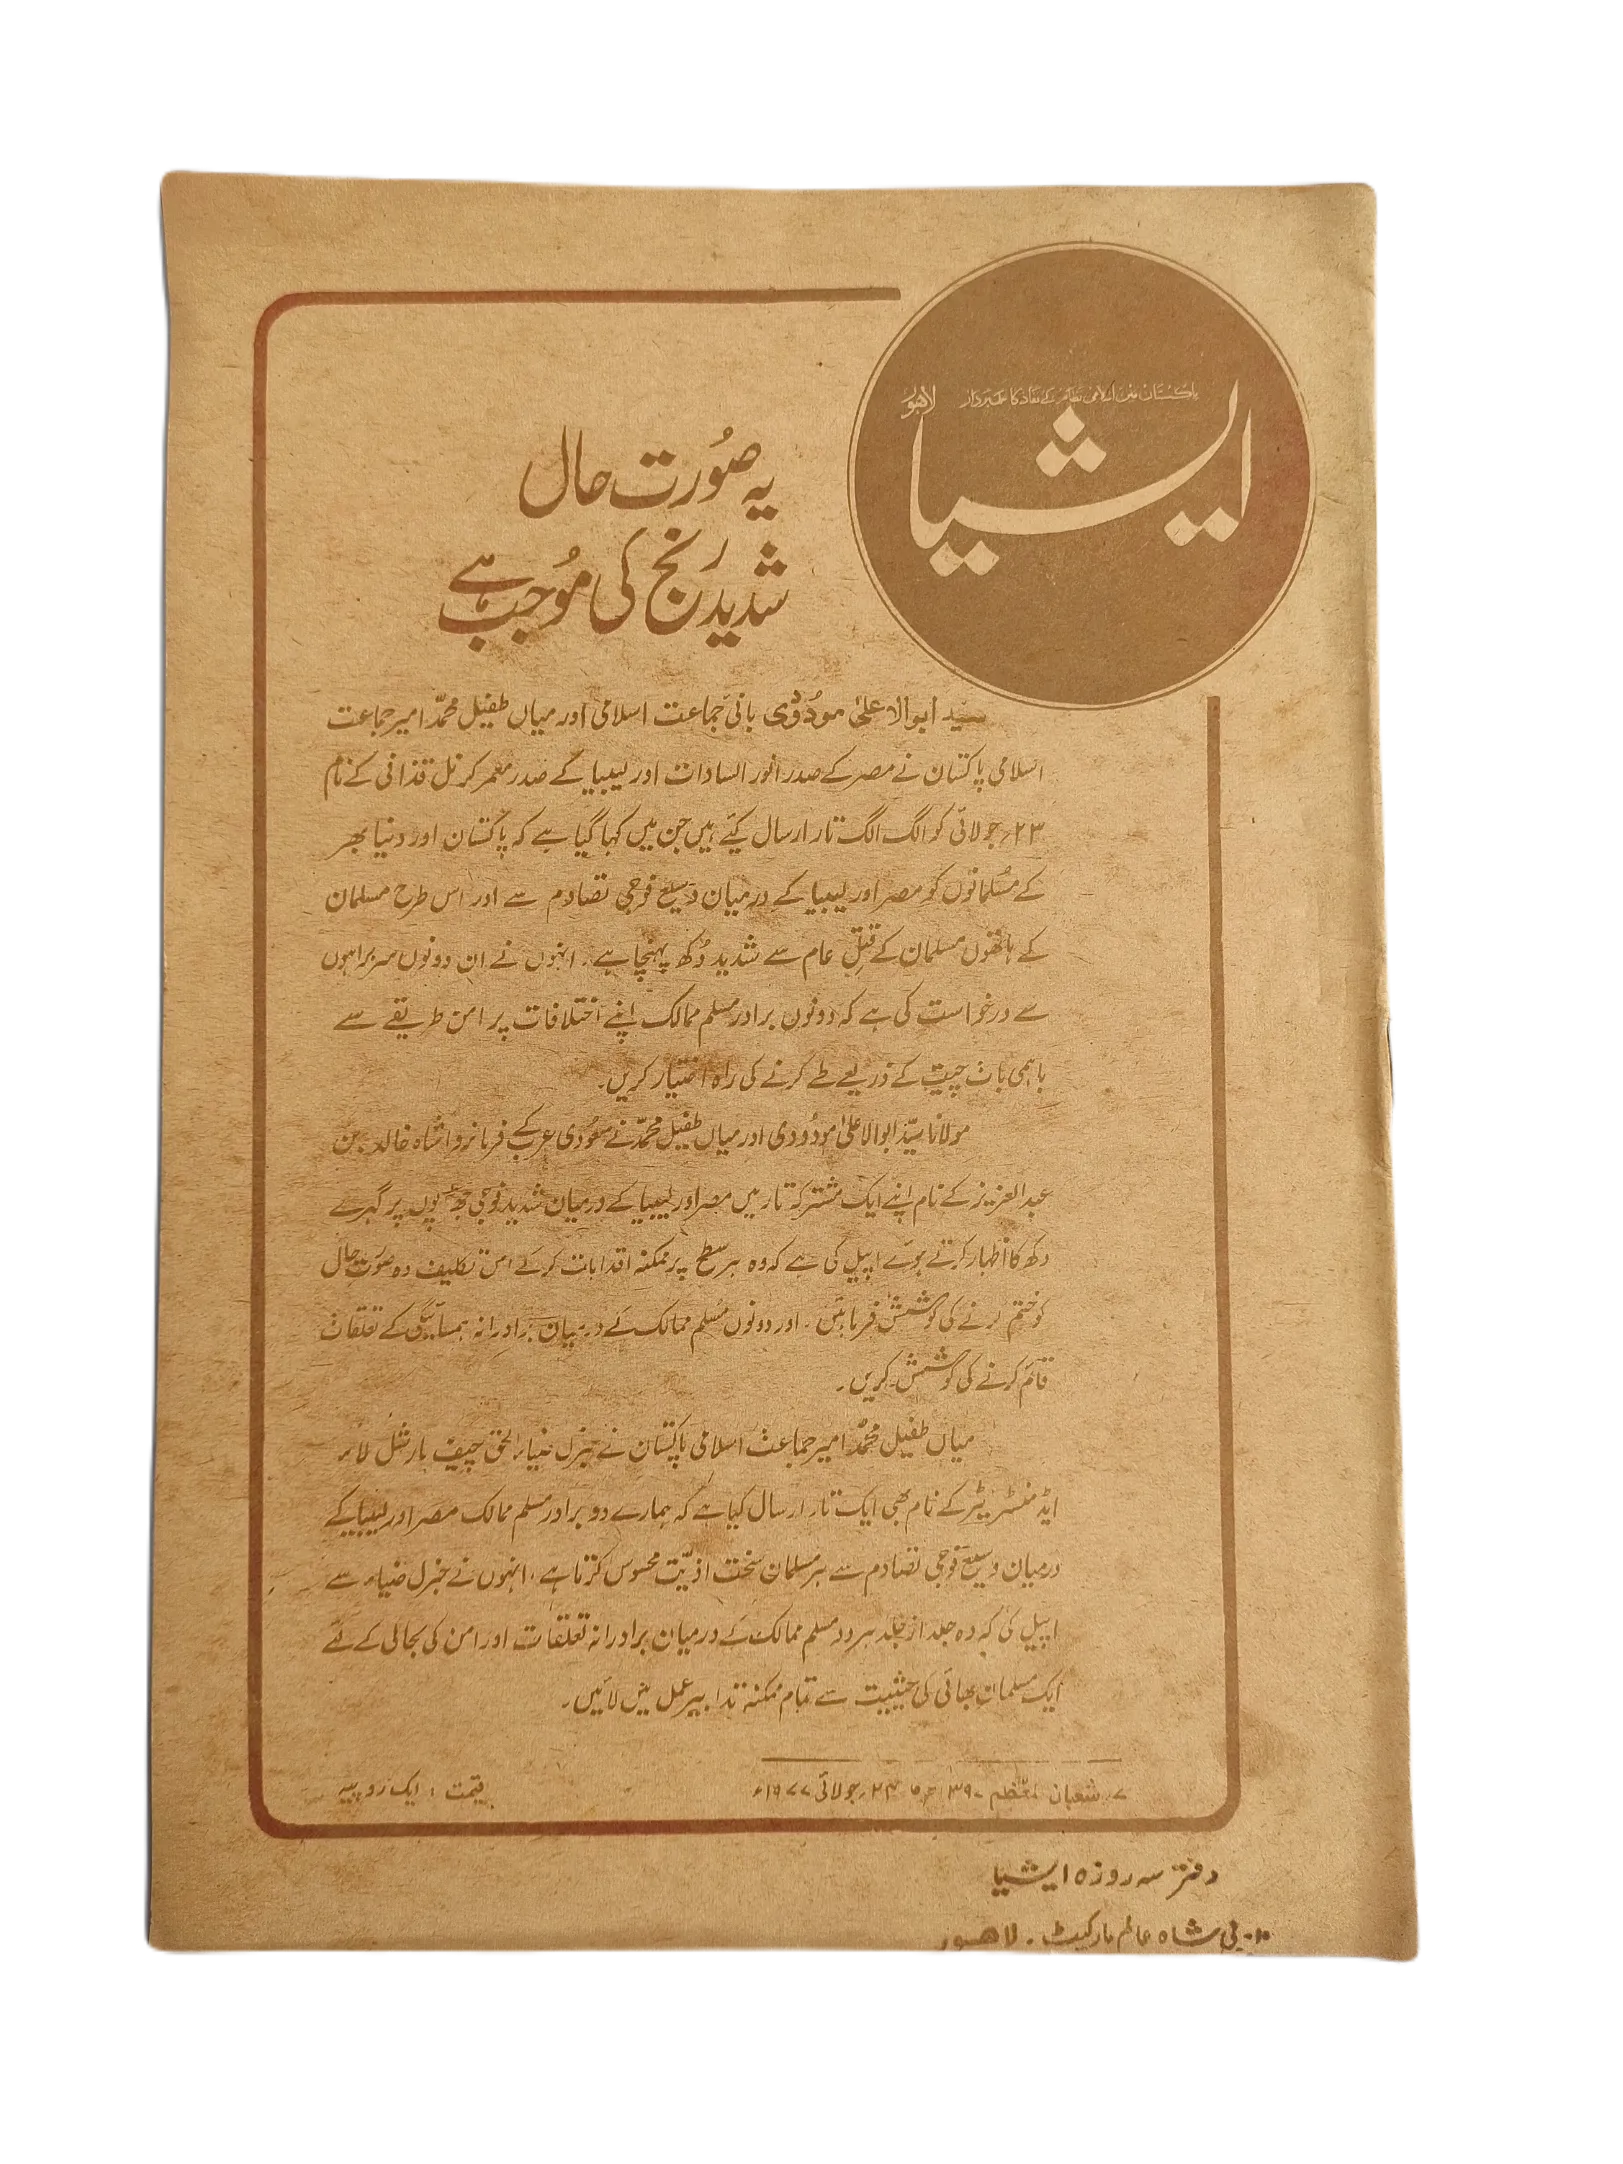 پاکستان میں اسلامی نظام کے نفاذ کا علمبردار
لاہور
ایشیا
یہ صُورت حال
شدید رنج کی مُوجب ہے
سید ابوالاعلیٰ مودُودی بانیٔ جماعت اسلامی اور میاں طفیل محمدؐ امیر جماعت
اسلامی پاکستان نے مصر کے صدر انور السادات اور لیبیا کے صدر معمر کرنل قذافی کے نام
۲۳؍ جولائی کو الگ الگ تار ارسال کیئے ہیں جن میں کہا گیا ہے کہ پاکستان اور دنیا بھر
کے مسُلمانوں کو مصر اور لیبیا کے درمیان وسیع فوجی تصادم سے اور اس طرح مسلمان
کے ہاتھوں مسلمان کے قتلِ عام سے شدید دُکھ پہنچا ہے۔ انہوں نے ان دونوں سربراہوں
سے درخواست کی ہے کہ دونوں برادر مسلم ممالک اپنے اختلافات پر امن طریقے سے
باہمی بات چیت کے ذریعے طے کرنے کی راہ اختیار کریں۔
مولانا سیّد ابوالاعلیٰ مودُودی اور میاں طفیل محمدؐ نے سعُودی عرب کے فرمانروا شاہ خالد بن
عبدالعزیز کے نام اپنے ایک مشترکہ تار میں مصر اور لیبیا کے درمیان شدید فوجی جھڑپوں پر گہرے
دکھ کا اظہار کرتے ہوئے اپیل کی ہے کہ وہ ہر سطح پر ممکنہ اقدامات کر کے اس تکلیف دہ صورت حال
کو ختم کرنے کی کوشش فرمائیں۔ اور دونوں مُسلم ممالک کے درمیان برادرانہ ہمسائیگی کے تعلقات
قائم کرنے کی کوشش کریں۔
میاں طفیل محمدؐ امیر جماعت اسلامی پاکستان نے جنرل ضیاء الحق چیف مارشل لاء
ایڈمنسٹریٹر کے نام بھی ایک تار ارسال کیا ہے کہ ہمارے دو برادر مسلم ممالک مصر اور لیبیا کے
درمیان وسیع فوجی تصادم سے ہر مسلمان سخت اذیّت محسوس کرتا ہے، انہوں نے جنرل ضیاء سے
اپیل کی کہ وہ جلد از جلد ہر دو مسلم ممالک کے درمیان برادرانہ تعلقات اور امن کی بحالی کے لئے
ایک مسلمان بھائی کی حیثیت سے تمام ممکنہ تدابیر عمل میں لائیں۔
۷؍ شعبان المعظم ۱۳۹۷ھ ۲۴؍ جولائی ۱۹۷۷ء
قیمت : ایک روپیہ
دفتر سہ روزہ ایشیا
۱۰۔بی شاہ عالم مارکیٹ۔ لاہور